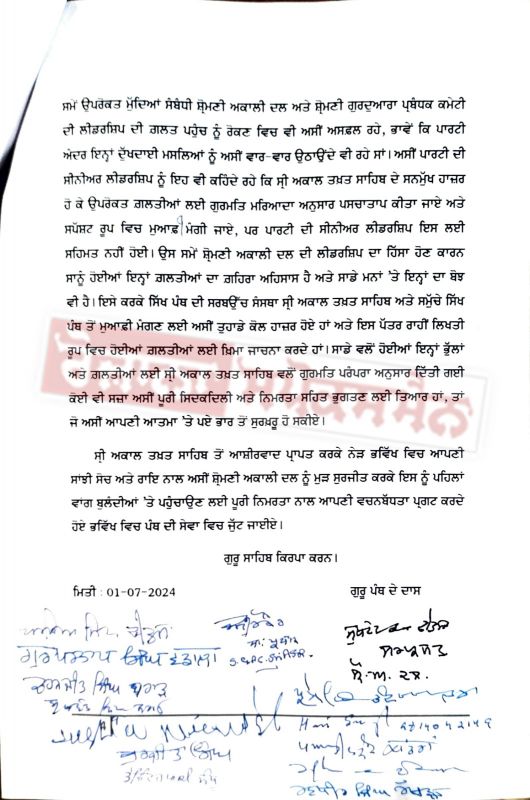 ਸਮੇਂ ਉਪਰੋਕਤ ਮੁੱਦਿਆਂ ਸੰਬੰਧੀ ਸ਼੍ਰੋਮਣੀ ਅਕਾਲੀ ਦਲ ਅਤੇ ਸ਼੍ਰੋਮਣੀ ਗੁਰਦੁਆਰਾ ਪ੍ਰਬੰਧਕ ਕਮੇਟੀ
ਦੀ ਲੀਡਰਸ਼ਿਪ ਦੀ ਗ਼ਲਤ ਪਹੁੰਚ ਨੂੰ ਰੋਕਣ ਵਿਚ ਵੀ ਅਸੀਂ ਅਸਫ਼ਲ ਰਹੇ, ਭਾਵੇਂ ਕਿ ਪਾਰਟੀ
ਅੰਦਰ ਇਨ੍ਹਾਂ ਦੁੱਖਦਾਈ ਮਸਲਿਆਂ ਨੂੰ ਅਸੀਂ ਵਾਰ-ਵਾਰ ਉਠਾਉਂਦੇ ਵੀ ਰਹੇ ਸਾਂ। ਅਸੀਂ ਪਾਰਟੀ ਦੀ
ਸੀਨੀਅਰ ਲੀਡਰਸ਼ਿਪ ਨੂੰ ਇਹ ਵੀ ਕਹਿੰਦੇ ਰਹੇ ਕਿ ਸ੍ਰੀ ਅਕਾਲ ਤਖ਼ਤ ਸਾਹਿਬ ਦੇ ਸਨਮੁੱਖ ਹਾਜ਼ਰ
ਹੋ ਕੇ ਉਪਰੋਕਤ ਗ਼ਲਤੀਆਂ ਲਈ ਗੁਰਮਤਿ ਮਰਿਆਦਾ ਅਨੁਸਾਰ ਪਸਚਾਤਾਪ ਕੀਤਾ ਜਾਏ ਅਤੇ
ਸਪੱਸ਼ਟ ਰੂਪ ਵਿਚ ਮੁਆਫ਼ੀ ਮੰਗੀ ਜਾਏ, ਪਰ ਪਾਰਟੀ ਦੀ ਸੀਨੀਅਰ ਲੀਡਰਸ਼ਿਪ ਇਸ ਲਈ
ਸਹਿਮਤ ਨਹੀਂ ਹੋਈ। ਉਸ ਸਮੇਂ ਸ਼੍ਰੋਮਣੀ ਅਕਾਲੀ ਦਲ ਦੀ ਲੀਡਰਸ਼ਿਪ ਦਾ ਹਿੱਸਾ ਹੋਣ ਕਾਰਨ
ਸਾਨੂੰ ਹੋਈਆਂ ਇਨ੍ਹਾਂ ਗ਼ਲਤੀਆਂ ਦਾ ਗਹਿਰਾ ਅਹਿਸਾਸ ਹੈ ਅਤੇ ਸਾਡੇ ਮਨਾਂ 'ਤੇ ਇਨ੍ਹਾਂ ਦਾ ਬੋਝ
ਵੀ ਹੈ। ਇਸੇ ਕਰਕੇ ਸਿੱਖ ਪੰਥ ਦੀ ਸਰਬਉੱਚ ਸੰਸਥਾ ਸ੍ਰੀ ਅਕਾਲ ਤਖ਼ਤ ਸਾਹਿਬ ਅਤੇ ਸਮੁੱਚੇ ਸਿੱਖ
ਪੰਥ ਤੋਂ ਮੁਆਫ਼ੀ ਮੰਗਣ ਲਈ ਅਸੀਂ ਤੁਹਾਡੇ ਕੋਲ ਹਾਜ਼ਰ ਹੋਏ ਹਾਂ ਅਤੇ ਇਸ ਪੱਤਰ ਰਾਹੀਂ ਲਿਖਤੀ
ਰੂਪ ਵਿਚ ਹੋਈਆਂ ਗ਼ਲਤੀਆਂ ਲਈ ਖ਼ਿਮਾ ਜਾਚਨਾ ਕਰਦੇ ਹਾਂ। ਸਾਡੇ ਵਲੋਂ ਹੋਈਆਂ ਇਨ੍ਹਾਂ ਭੁੱਲਾਂ
ਅਤੇ ਗ਼ਲਤੀਆਂ ਲਈ ਸ੍ਰੀ ਅਕਾਲ ਤਖ਼ਤ ਸਾਹਿਬ ਵਲੋਂ ਗੁਰਮਤਿ ਪਰੰਪਰਾ ਅਨੁਸਾਰ ਦਿੱਤੀ ਗਈ
ਕੋਈ ਵੀ ਸਜ਼ਾ ਅਸੀਂ ਪੂਰੀ ਸਿਦਕਦਿਲੀ ਅਤੇ ਨਿਮਰਤਾ ਸਹਿਤ ਭੁਗਤਣ ਲਈ ਤਿਆਰ ਹਾਂ, ਤਾਂ
ਜੋ ਅਸੀਂ ਆਪਣੀ ਆਤਮਾ 'ਤੇ ਪਏ ਭਾਰ ਤੋਂ ਸੁਰਖ਼ਰੂ ਹੋ ਸਕੀਏ।
ਸ੍ਰੀ ਅਕਾਲ ਤਖ਼ਤ ਸਾਹਿਬ ਤੋਂ ਆਸ਼ੀਰਵਾਦ ਪ੍ਰਾਪਤ ਕਰਕੇ ਨੇੜ ਭਵਿੱਖ ਵਿਚ ਆਪਣੀ
ਸਾਂਝੀ ਸੋਚ ਅਤੇ ਰਾਇ ਨਾਲ ਅਸੀਂ ਸ਼੍ਰੋਮਣੀ ਅਕਾਲੀ ਦਲ ਨੂੰ ਮੁੜ ਸੁਰਜੀਤ ਕਰਕੇ ਇਸ ਨੂੰ ਪਹਿਲਾਂ
ਵਾਂਗ ਬੁਲੰਦੀਆਂ 'ਤੇ ਪਹੁੰਚਾਉਣ ਲਈ ਪੂਰੀ ਨਿਮਰਤਾ ਨਾਲ ਆਪਣੀ ਵਚਨਬੱਧਤਾ ਪ੍ਰਗਟ ਕਰਦੇ
ਹੋਏ ਭਵਿੱਖ ਵਿਚ ਪੰਥ ਦੀ ਸੇਵਾ ਵਿਚ ਜੁੱਟ ਜਾਈਏ।
ਗੁਰੂ ਸਾਹਿਬ ਕਿਰਪਾ ਕਰਨ।
ਮਿਤੀ : 01-07-2024 ਗੁਰੂ ਪੰਥ ਦੇ ਦਾਸ